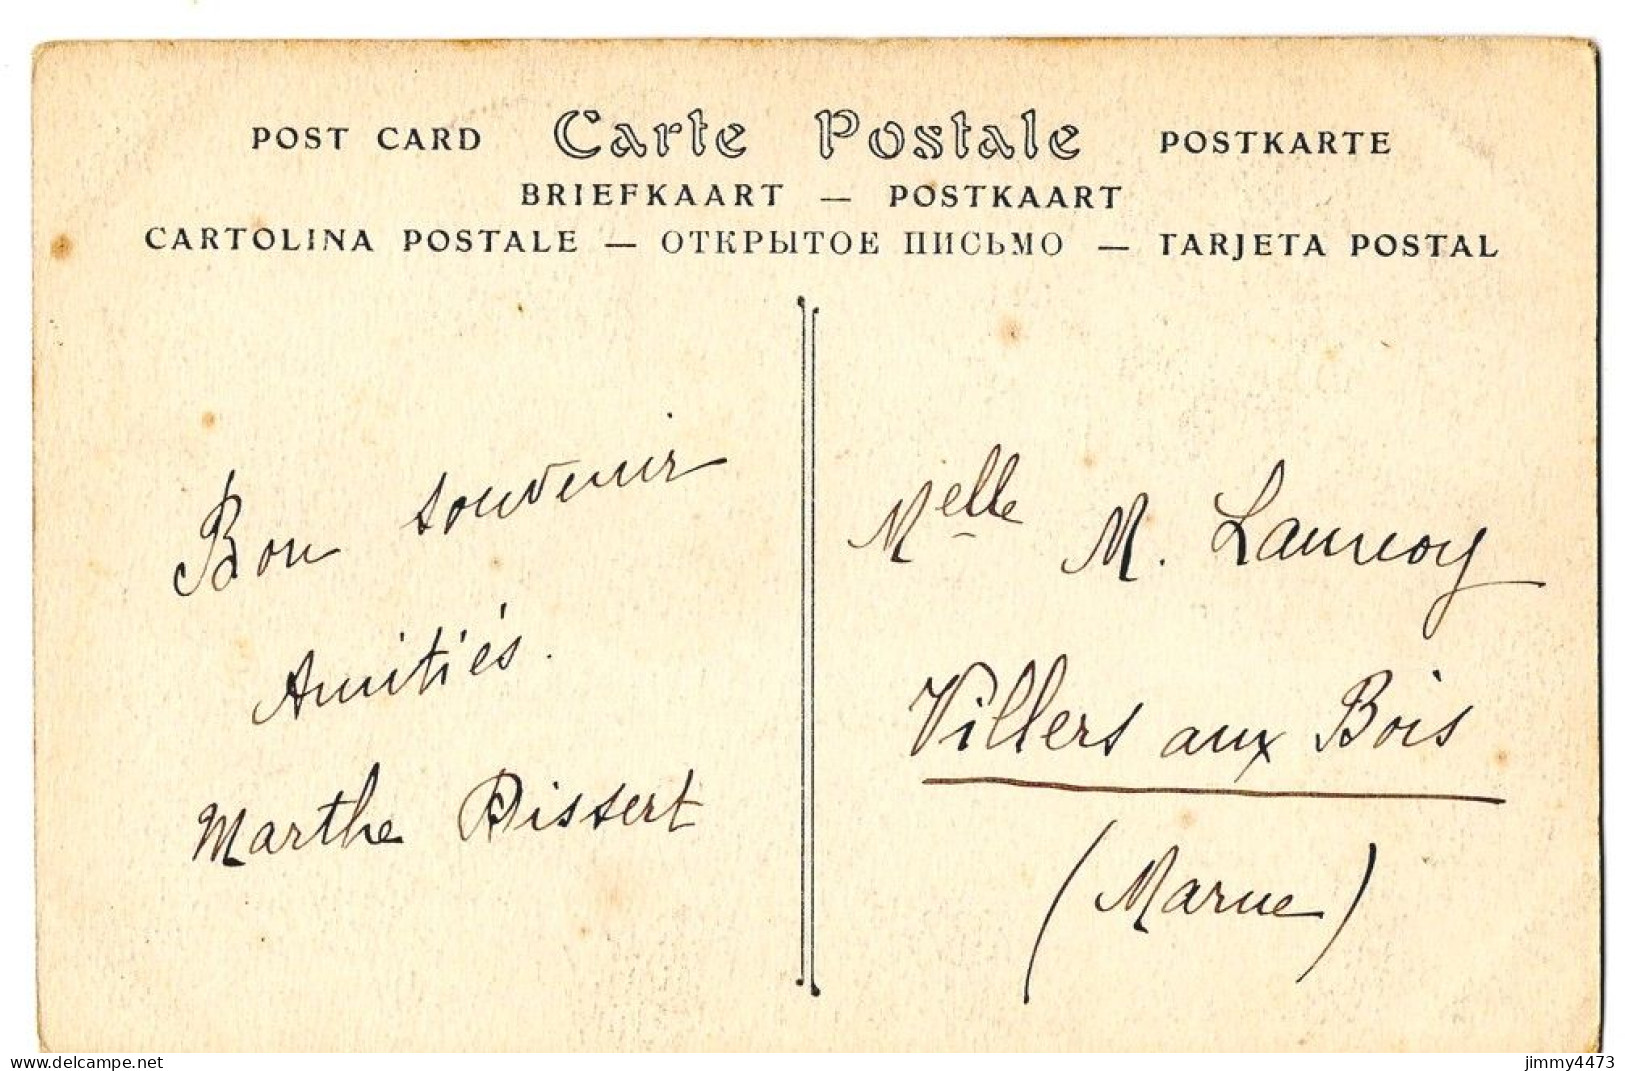 POST CARD Carte Postale POSTKARTE
BRIEFKAART — POSTKAART
CARTOLINA POSTALE — ОТКРЫТОЕ ПИСЬМО — TARJETA POSTAL
Bon souvenir
Amitiés.
Marthe Bissert
Melle M. Launoy
Villers aux Bois
(Marne)
delcampe.net
jimmy4473